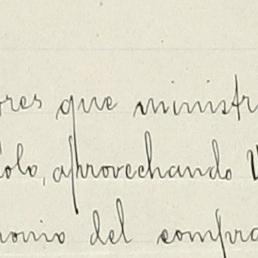 ores que ministr
olo, aprovechando
onio del compra